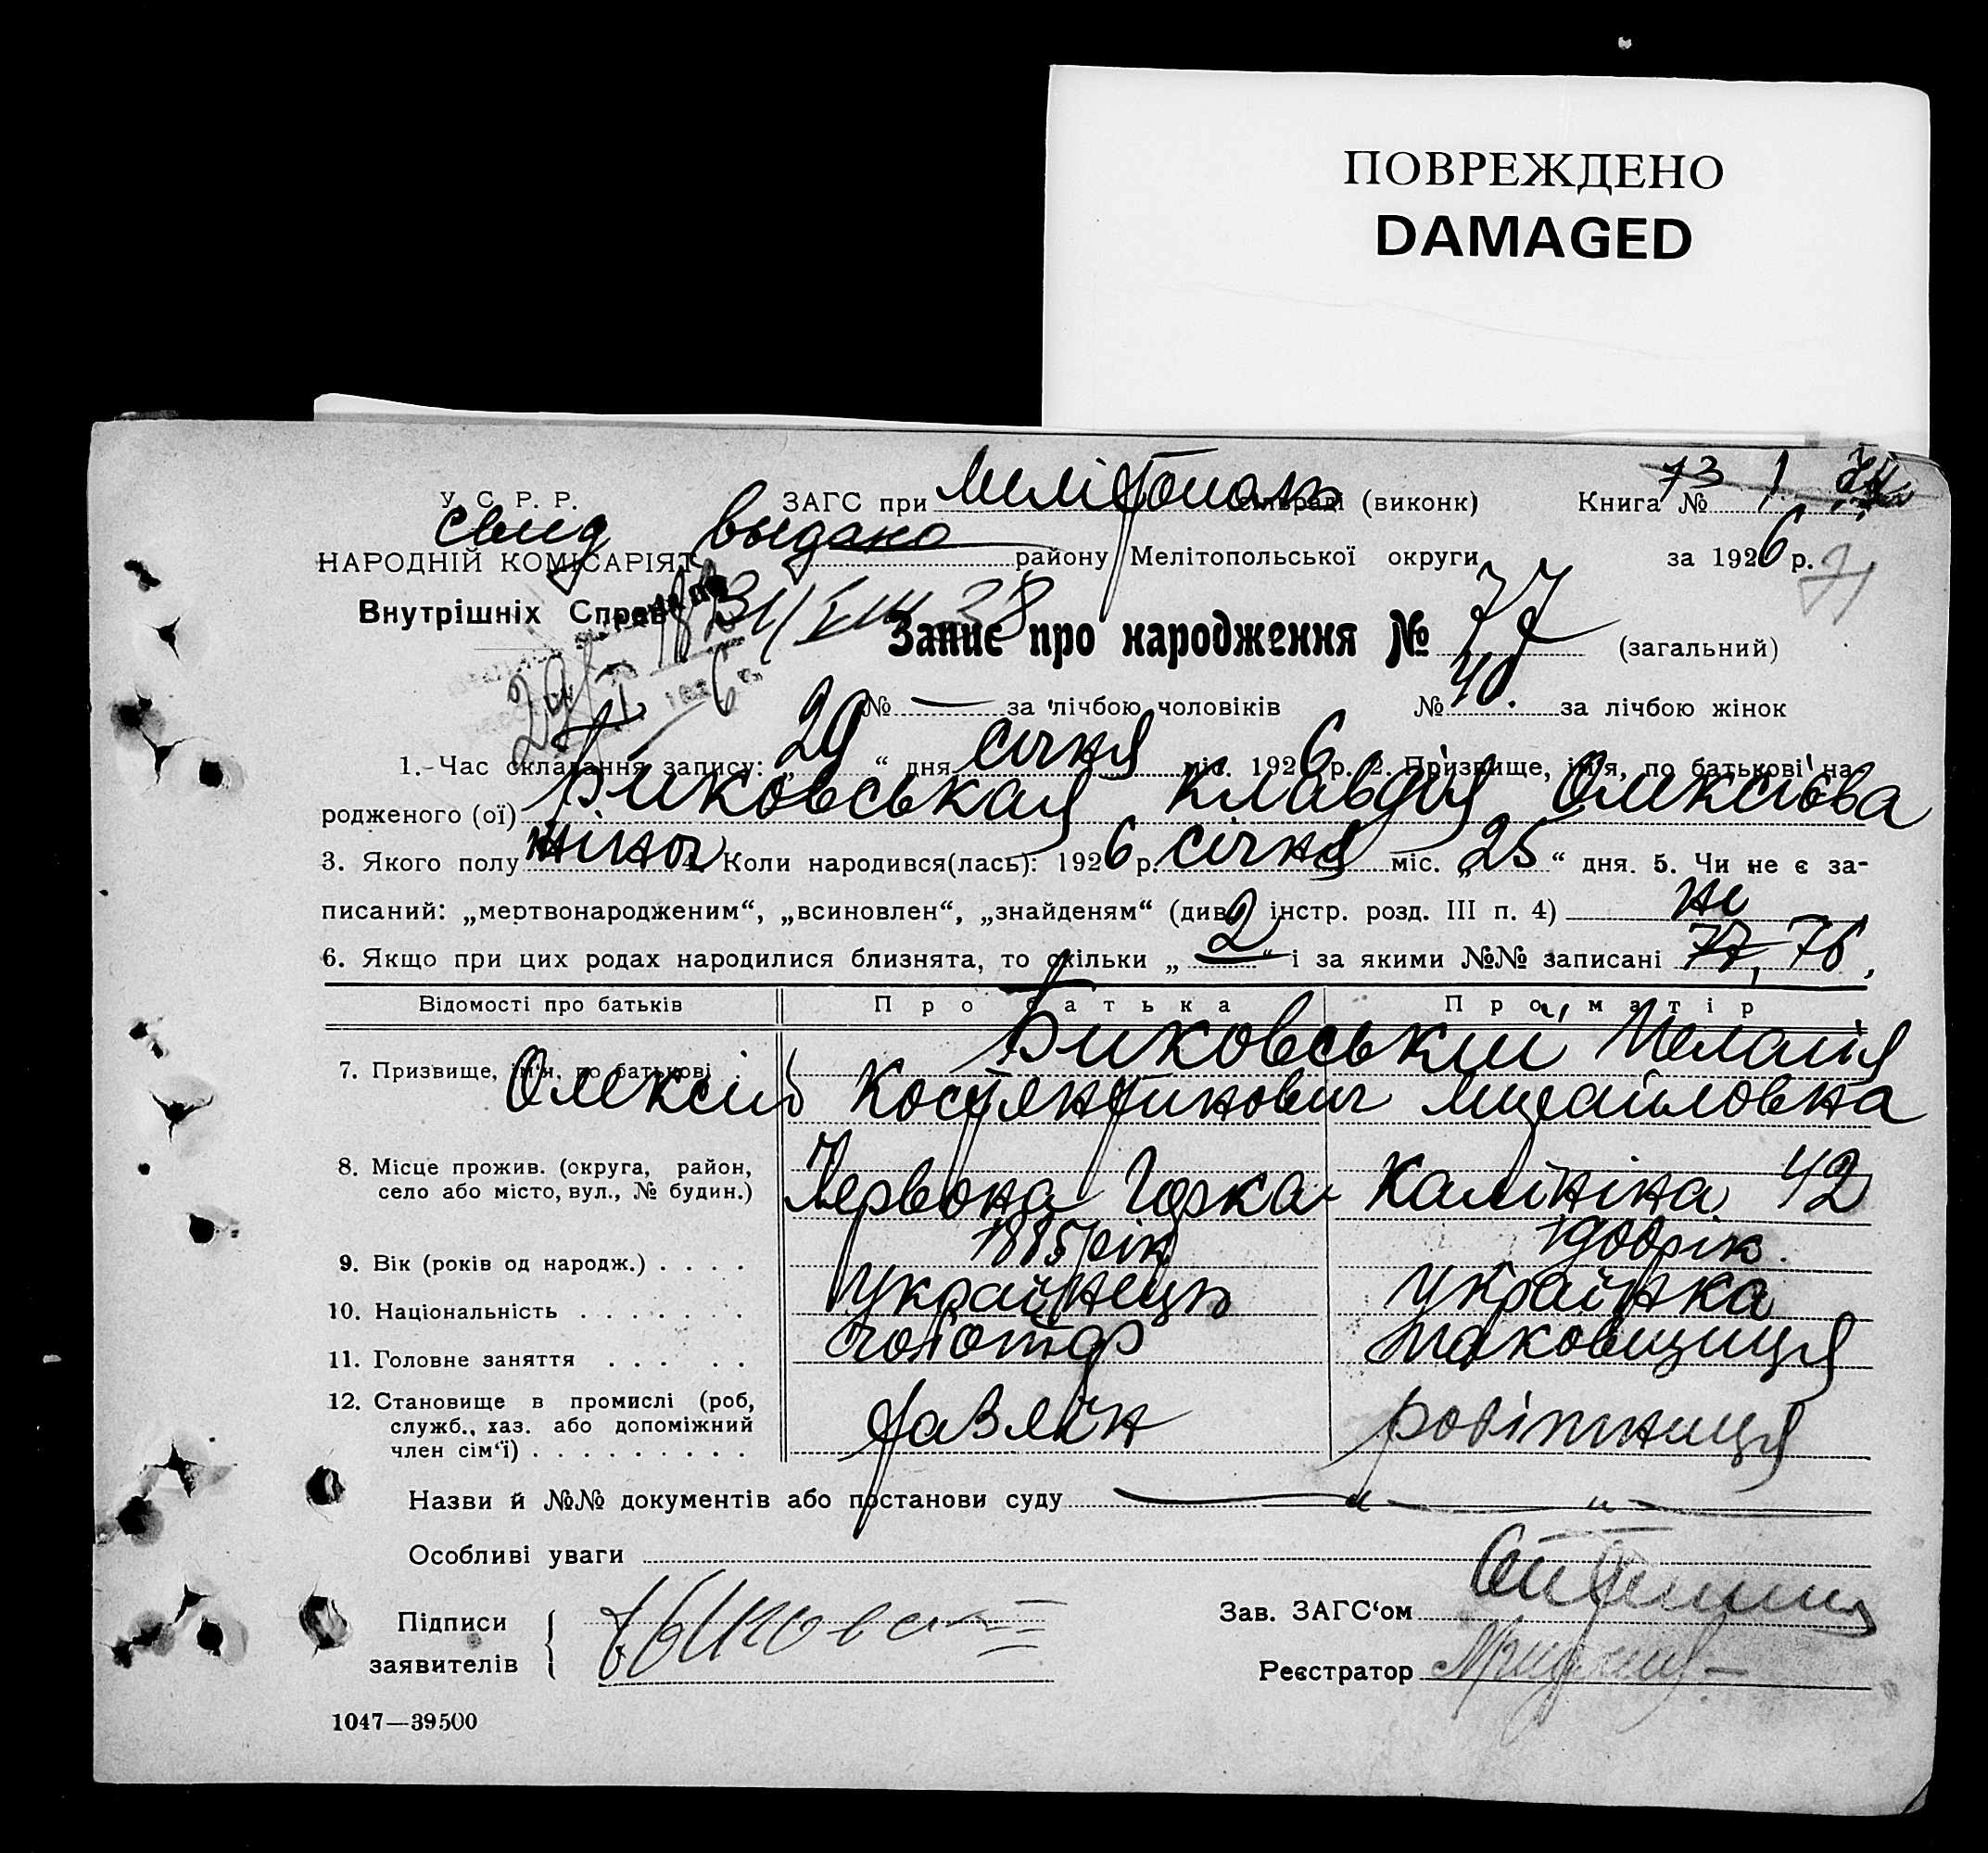 ПОВРЕЖДЕНО
DAMAGED
У. С. Р. Р. ЗАГС при Мелітополь сільраді (виконк) Книга № 73 1
свид выдано
НАРОДНІЙ КОМІСАРІЯТ району Мелітопольської округи за 1926 р. 71
Внутрішніх Справ 31/VIII 38
Запис про народження № 77 (загальний)
29/I 1926 г.
№ — за лічбою чоловіків № 40. за лічбою жінок
1. Час складання запису: „29“ дня січня міс. 1926 р. 2. Призвище, ім'я, по батькові на-
родженого (ої) Биковськая Клавдія Олексієва
3. Якого полу жіноч 4. Коли народився(лась): 1926 р. січня міс. „25“ дня. 5. Чи не є за-
писаний: „мертвонародженим“, „всиновлен“, „знайденям“ (див. інстр. розд. III п. 4) не
6. Якщо при цих родах народилися близнята, то скільки „2“ і за якими №№ записані 77, 76,
Відомості про батьків Про батька Про матір
7. Призвище, ім'я, по батькові Биковський Меланія
Олексій Костянтинович Михайловна
8. Місце прожив. (округа, район,
село або місто, вул., № будин.) Червона Горка Калініна 42
9. Вік (років од народж.) . . . . 1885 рік 1900 рік.
10. Національність . . . . . . . Українець Українка
11. Головне заняття . . . . . чоботар
12. Становище в промислі (роб,
служб., хаз. або допоміжний
член сім'ї) . . . . . . . . . хазяїн робітниця
Назви й №№ документів або постанови суду — „ — „ —
Особливі уваги
Підписи
заявителів
Зав. ЗАГС'ом
Реєстратор
1047—39500